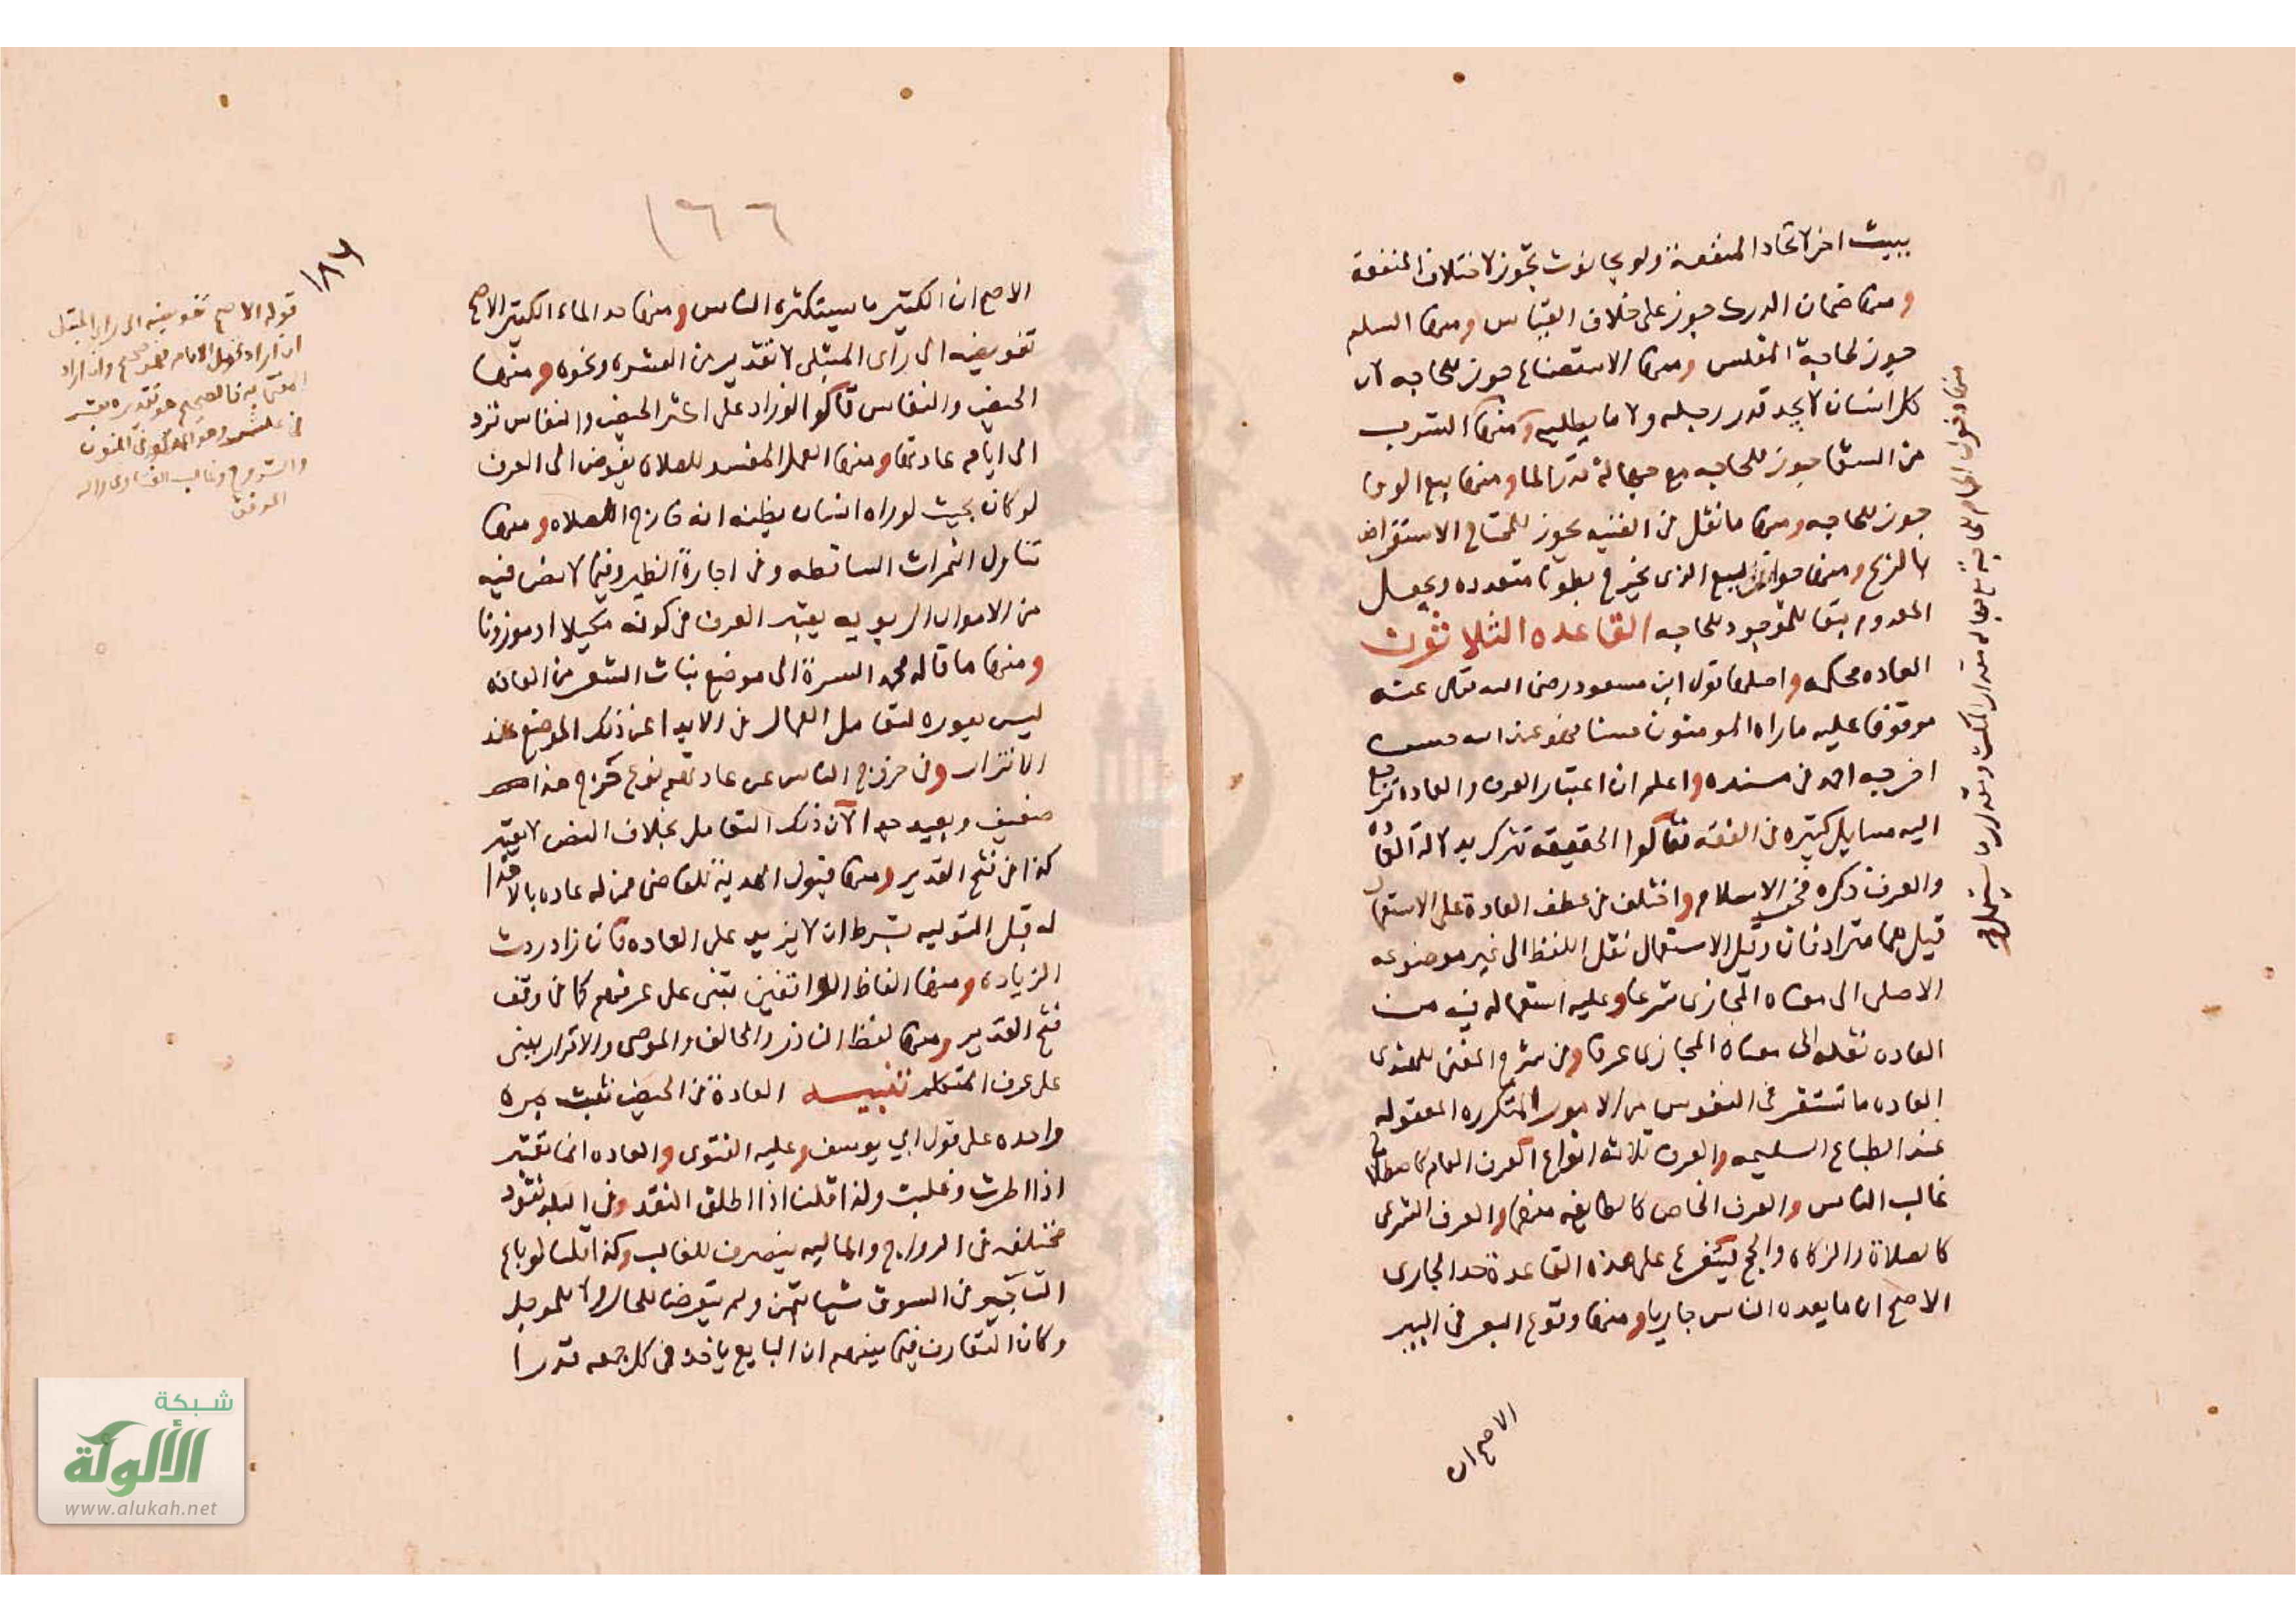 ببيت اخر لاتحاد المنفعة ولو بحانوت تجوز لاختلاف المنفعة
ومنها ضمان الدرك جوز على خلاف القياس ومنها السلم
جوز لحاجة المفلس ومنها الاستصناع جوز للحاجه لان
كل انسان لا يجد قدر رجله ولا ما يطلبه ومنها الشرب
من السقا جوز للحاجه مع جهالة قدر الما ومنها بيع الوفا
جوز للحاجه ومنها ما نقل في القنيه يجوز للمحتاج الاستقراض
بالربح ومنها جواز البيع الذى يخرج بطونا متعدده ويجعل
المعدوم تبعا للموجود للحاجه القاعده الثلاثون
العاده محكمه واصلها قول ابن مسعود رضى الله تعالى عنه
موقوفا عليه ما راه المومنون حسنا فهو عند الله حسن
اخرجه احمد في مسنده واعلم ان اعتبار العرف والعاده ترجع
اليه مسايل كثيره في الفقه فقالوا الحقيقه تترك بدلالة العاده
والعرف ذكره فخر الاسلام واختلف في عطف العادة على الاستعمال
قيل هما مترادفان وقيل الاستعمال نقل اللفظ الى غير موضوعه
الاصلى الى معناه المجازى شرعا وعليه استعماله فيه من
العاده نقله الى معناه المجازى عرفا وفي شرح المغنى للهندى
العاده ما تستقر في النفوس من الامور المتكرره المعقوله
عند الطباع السليمه والعرف ثلاثه انواع العرف العام كاصطلاح
غالب الناس والعرف الخاص كالطايفه منها والعرف الشرعى
كالصلاة والزكاه والحج ليتفرع على هذه القاعدة حد الجارى
الاصح ان ما يعده الناس جاريا ومنها وقوع البعر في البير
الاصح ان
منها دخول الحمام للحاجة مع جهالة مقدار المكث وقدر ما يستعمله
١٦٦
١٨٦
الاصح ان الكثير ما يستكثره الناس ومنها حد الماء الكثير الاصح
تفويضه الى رأى المبتلى لا تقديره من العشره ونحوه ومنها
الحيض والنفاس قالوا لو زاد على اكثر الحيض والنفاس ترد
الى ايام عادتها ومنها العمل المفسد للصلاه يفوض الى العرف
لو كان بحيث لو راه انسان يظنه انه خارج الصلاه ومنها
تناول الثمرات الساقطه وفي اجارة الظير وفيما لا نص فيه
من الاموال الربويه يعتبر العرف في كونه مكيلا او موزونا
ومنها ما قاله محمد السرة الى موضع نبات الشعر من العانه
ليس بعوره لتعامل العمال في الابدا عن ذلك الموضع عند
الاتزار وفي خروج الناس عن عادتهم نوع حرج هذا
ضعيف وبعيد جدا لان ذلك التعامل بخلاف النص لا يعتبر
كذا في فتح القدير ومنها قبول الهدية للقاضى ممن له عاده بالاهدا
له قبل التوليه بشرط ان لا يزيد على العاده فان زاد ردت
الزياده ومنها الفاظ الواقفين تبنى على عرفهم كما في وقف
فتح القدير ومنها لفظ الناذر والحالف والموصى والاقرار يبنى
على عرف المتكلم تنبيه العادة في الحيض تثبت بمره
واحده على قول ابي يوسف وعليه الفتوى والعاده انما تعتبر
اذا اطرت وغلبت ولذا قلنا اذا اطلق النقد وفي البلد نقود
مختلفه في الرواج والماليه ينصرف للغالب وكذا قلنا لو باع
التاجر في السوق شيا بثمن ولم يتعرضا للحال ولا للموجل
وكان التعارف فيما بينهم ان البايع ياخذ في كل جمعه قدرا
قوله الاصح تفويضه الى راى المبتلى
ان اراد نقل الامام فهو صحيح وان اراد
المفتى به فالصحيح هو تقديره بعشر
في عشر وهو المذكور في المتون
والشروح وغالب الفتاوى والله
الموفق
شبكة
الألوكة
www.alukah.net